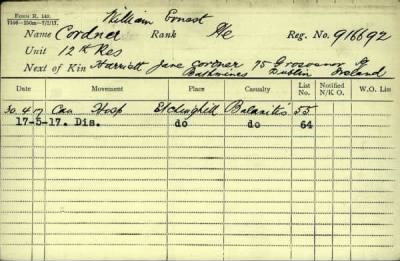 FORM R. 140.
William Ernest
Name Cordner Rank Pte Reg. No. 916692
Unit 12th Res
Next of Kin Harriett Jane Cordner 75 Grosvenor
Rathmines Dublin Ireland
Date Movement Place Casualty List No. Notified N/K O. W.O. List
30 4 17 Can Hosp Etchinghill Balanitis 55
17-5-17. Dis. do do 64